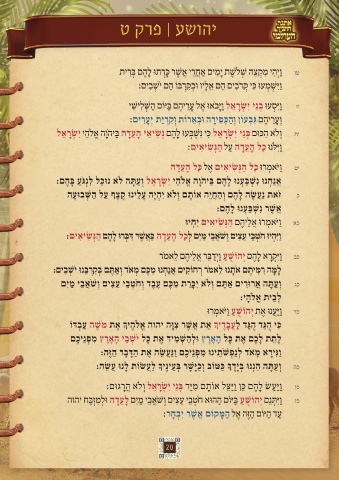 יהושע | פרק ט
טז וַיְהִי מִקְצֵה שְׁלֹשֶׁת יָמִים אַחֲרֵי אֲשֶׁר כָּרְתוּ לָהֶם בְּרִית
וַיִּשְׁמְעוּ כִּי קְרֹבִים הֵם אֵלָיו וּבְקִרְבּוֹ הֵם יֹשְׁבִים:
יז וַיִּסְעוּ בְנֵי יִשְׂרָאֵל וַיָּבֹאוּ אֶל עָרֵיהֶם בַּיּוֹם הַשְּׁלִישִׁי
וְעָרֵיהֶם גִּבְעוֹן וְהַכְּפִירָה וּבְאֵרוֹת וְקִרְיַת יְעָרִים:
יח וְלֹא הִכּוּם בְּנֵי יִשְׂרָאֵל כִּי נִשְׁבְּעוּ לָהֶם נְשִׂיאֵי הָעֵדָה בַּיהֹוָה אֱלֹהֵי יִשְׂרָאֵל
וַיִּלֹּנוּ כָל הָעֵדָה עַל הַנְּשִׂיאִים:
יט וַיֹּאמְרוּ כָל הַנְּשִׂיאִים אֶל כָּל הָעֵדָה
אֲנַחְנוּ נִשְׁבַּעְנוּ לָהֶם בַּיהֹוָה אֱלֹהֵי יִשְׂרָאֵל וְעַתָּה לֹא נוּכַל לִנְגֹּעַ בָּהֶם:
כ זֹאת נַעֲשֶׂה לָהֶם וְהַחֲיֵה אוֹתָם וְלֹא יִהְיֶה עָלֵינוּ קֶצֶף עַל הַשְּׁבוּעָה
אֲשֶׁר נִשְׁבַּעְנוּ לָהֶם:
כא וַיֹּאמְרוּ אֲלֵיהֶם הַנְּשִׂיאִים יִחְיוּ
וַיִּהְיוּ חֹטְבֵי עֵצִים וְשֹׁאֲבֵי מַיִם לְכָל הָעֵדָה כַּאֲשֶׁר דִּבְּרוּ לָהֶם הַנְּשִׂיאִים:
כב וַיִּקְרָא לָהֶם יְהוֹשֻׁעַ וַיְדַבֵּר אֲלֵיהֶם לֵאמֹר
לָמָּה רִמִּיתֶם אֹתָנוּ לֵאמֹר רְחוֹקִים אֲנַחְנוּ מִכֶּם מְאֹד וְאַתֶּם בְּקִרְבֵּנוּ יֹשְׁבִים:
כג וְעַתָּה אֲרוּרִים אַתֶּם וְלֹא יִכָּרֵת מִכֶּם עֶבֶד וְחֹטְבֵי עֵצִים וְשֹׁאֲבֵי מַיִם
לְבֵית אֱלֹהָי:
כד וַיַּעֲנוּ אֶת יְהוֹשֻׁעַ וַיֹּאמְרוּ
כִּי הֻגֵּד הֻגַּד לַעֲבָדֶיךָ אֵת אֲשֶׁר צִוָּה יהוה אֱלֹהֶיךָ אֶת מֹשֶׁה עַבְדּוֹ
לָתֵת לָכֶם אֶת כָּל הָאָרֶץ וּלְהַשְׁמִיד אֶת כָּל יֹשְׁבֵי הָאָרֶץ מִפְּנֵיכֶם
וַנִּירָא מְאֹד לְנַפְשֹׁתֵינוּ מִפְּנֵיכֶם וַנַּעֲשֵׂה אֶת הַדָּבָר הַזֶּה:
כה וְעַתָּה הִנְנוּ בְיָדֶךָ כַּטּוֹב וְכַיָּשָׁר בְּעֵינֶיךָ לַעֲשׂוֹת לָנוּ עֲשֵׂה:
כו וַיַּעַשׂ לָהֶם כֵּן וַיַּצֵּל אוֹתָם מִיַּד בְּנֵי יִשְׂרָאֵל וְלֹא הֲרָגוּם:
כז וַיִּתְּנֵם יְהוֹשֻׁעַ בַּיּוֹם הַהוּא חֹטְבֵי עֵצִים וְשֹׁאֲבֵי מַיִם לָעֵדָה וּלְמִזְבַּח יהוה
עַד הַיּוֹם הַזֶּה אֶל הַמָּקוֹם אֲשֶׁר יִבְחָר:
20